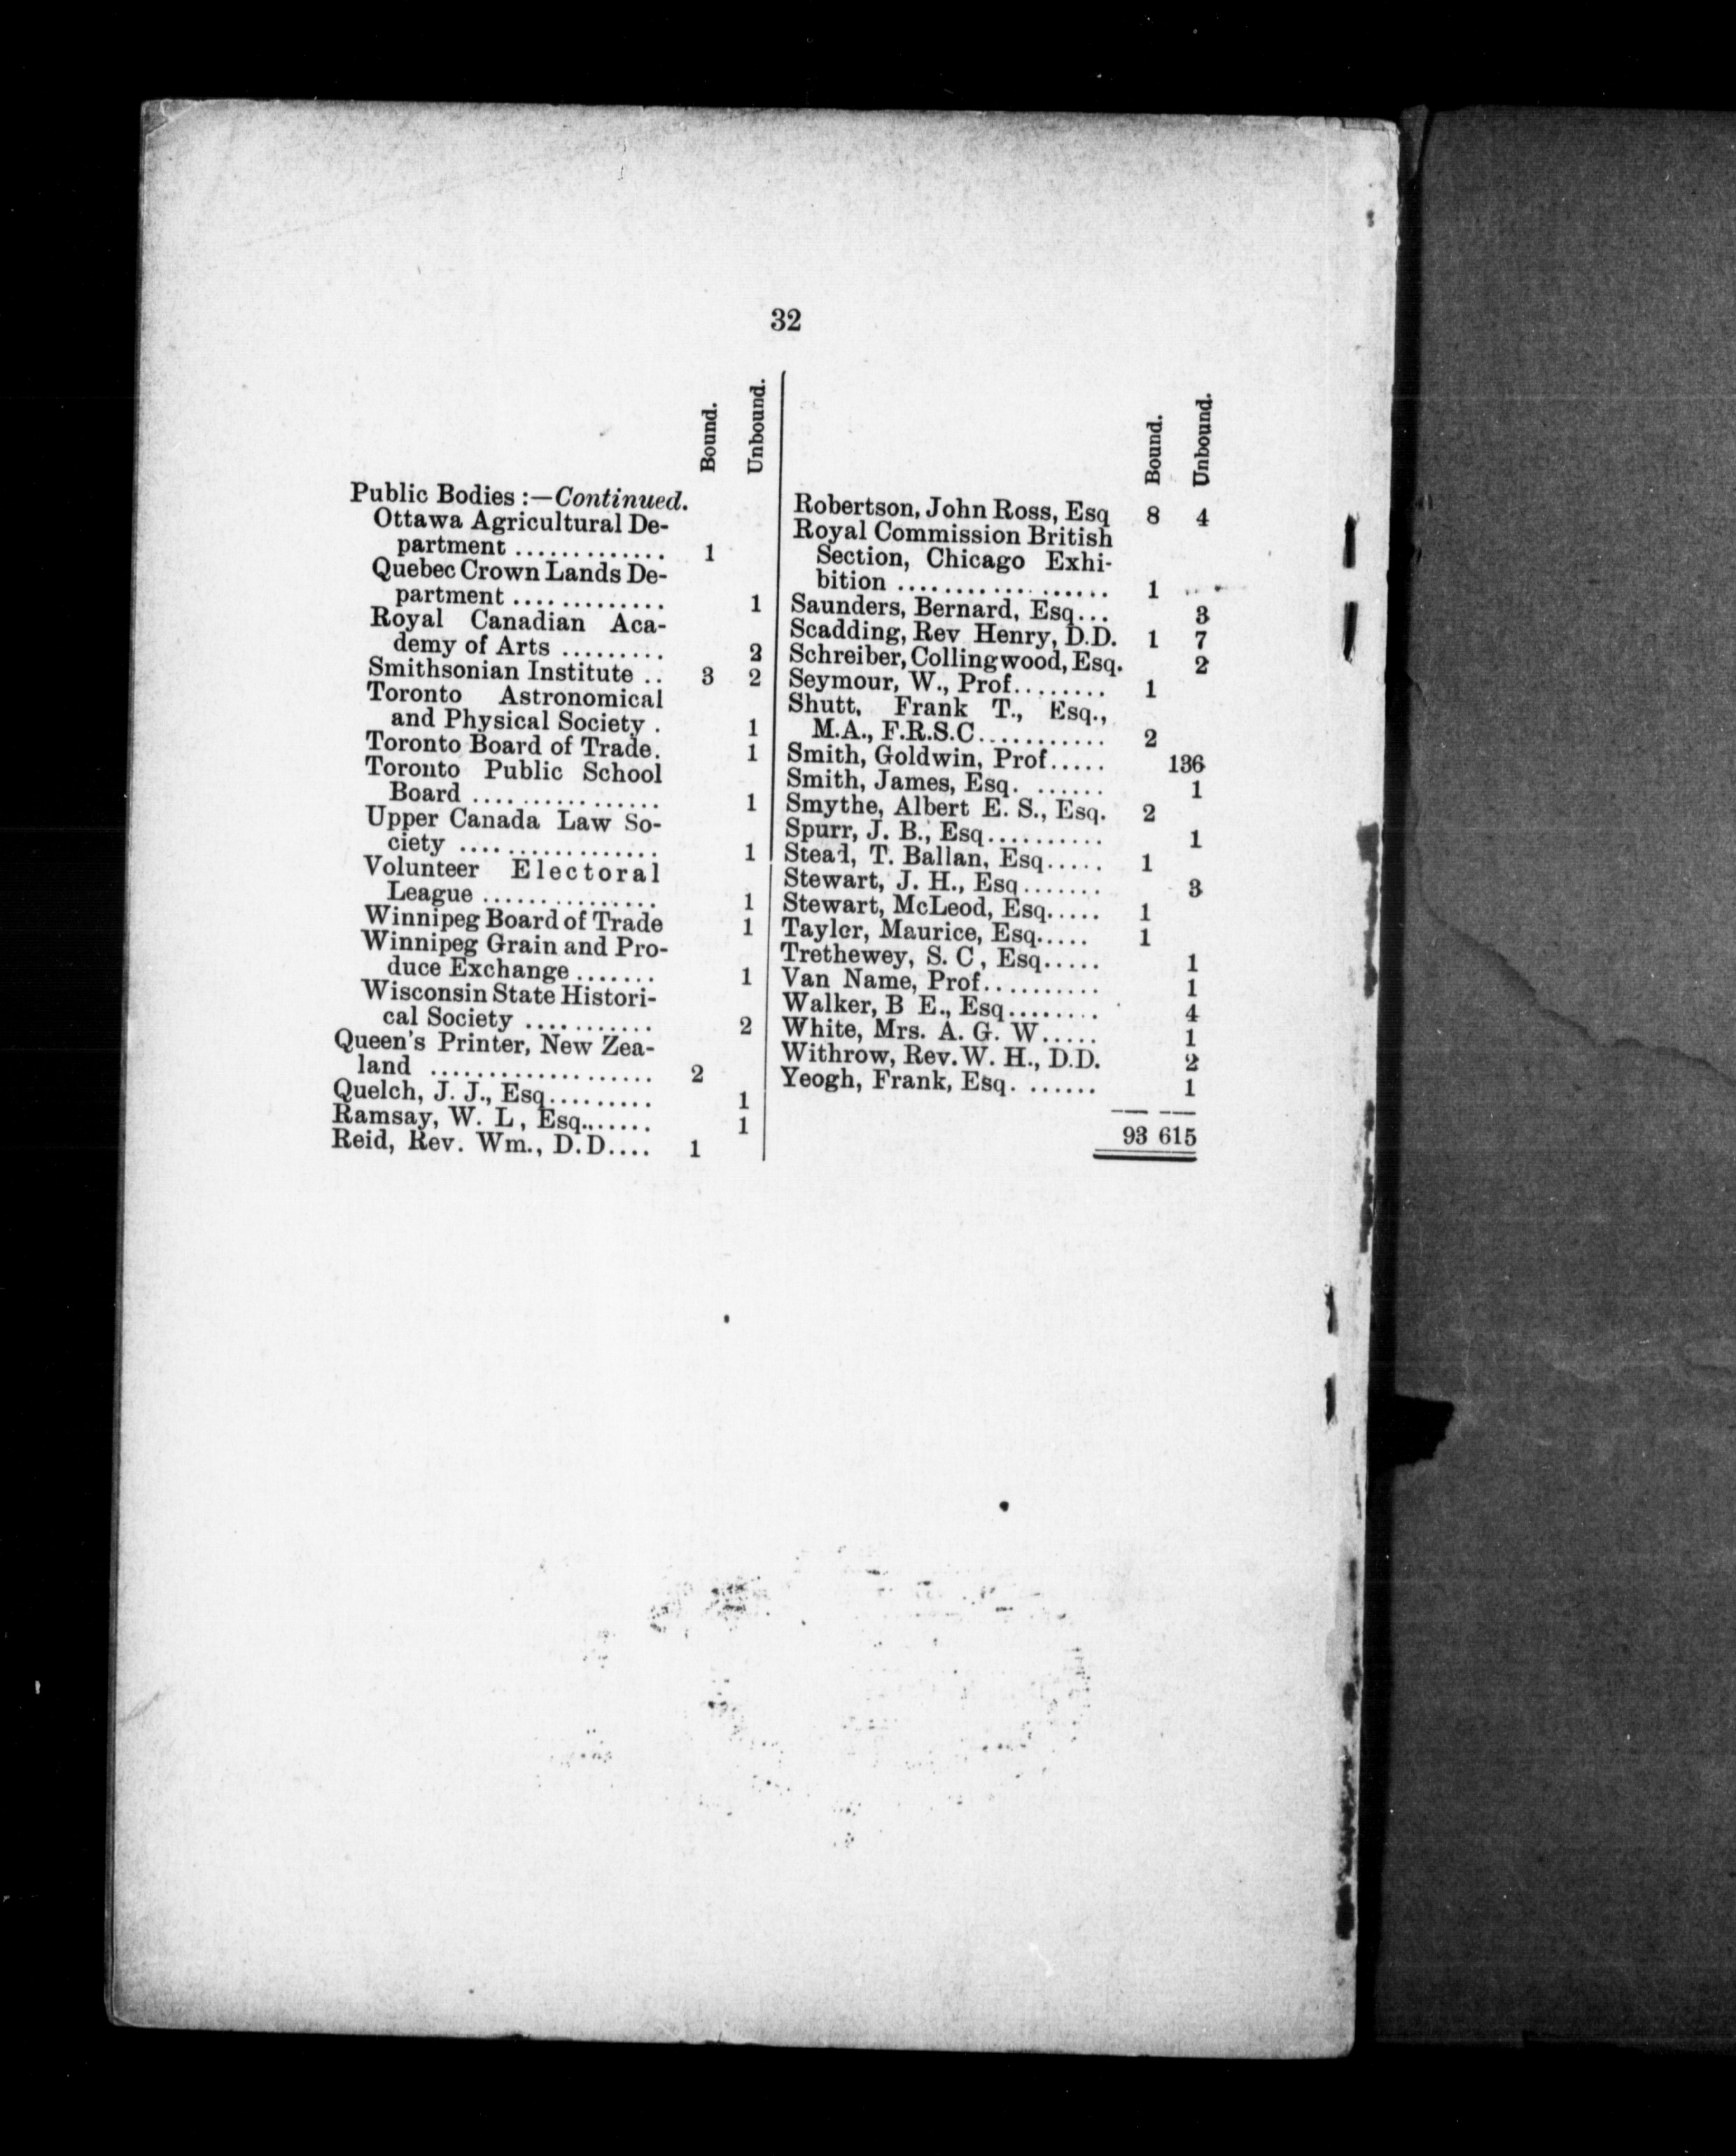 32
Bound. Unbound.
Public Bodies :—Continued.
Ottawa Agricultural De-
partment ............. 1
Quebec Crown Lands De-
partment ............. 1
Royal Canadian Aca-
demy of Arts ......... 2
Smithsonian Institute .. 3 2
Toronto Astronomical
and Physical Society . 1
Toronto Board of Trade. 1
Toronto Public School
Board ................ 1
Upper Canada Law So-
ciety ................. 1
Volunteer Electoral
League ............... 1
Winnipeg Board of Trade 1
Winnipeg Grain and Pro-
duce Exchange ....... 1
Wisconsin State Histori-
cal Society ........... 2
Queen's Printer, New Zea-
land ................... 2
Quelch, J. J., Esq......... 1
Ramsay, W. L, Esq....... 1
Reid, Rev. Wm., D.D.... 1
Bound. Unbound.
Robertson, John Ross, Esq 8 4
Royal Commission British
Section, Chicago Exhi-
bition .................. 1 ..
Saunders, Bernard, Esq... 3
Scadding, Rev Henry, D.D. 1 7
Schreiber, Collingwood, Esq. 2
Seymour, W., Prof........ 1
Shutt, Frank T., Esq.,
M.A., F.R.S.C........... 2
Smith, Goldwin, Prof..... 136
Smith, James, Esq. ...... 1
Smythe, Albert E. S., Esq. 2
Spurr, J. B., Esq.......... 1
Stead, T. Ballan, Esq..... 1
Stewart, J. H., Esq....... 3
Stewart, McLeod, Esq..... 1
Tayler, Maurice, Esq..... 1
Trethewey, S. C, Esq..... 1
Van Name, Prof.......... 1
Walker, B E., Esq........ 4
White, Mrs. A. G. W..... 1
Withrow, Rev. W. H., D.D. 2
Yeogh, Frank, Esq. ...... 1
93 615